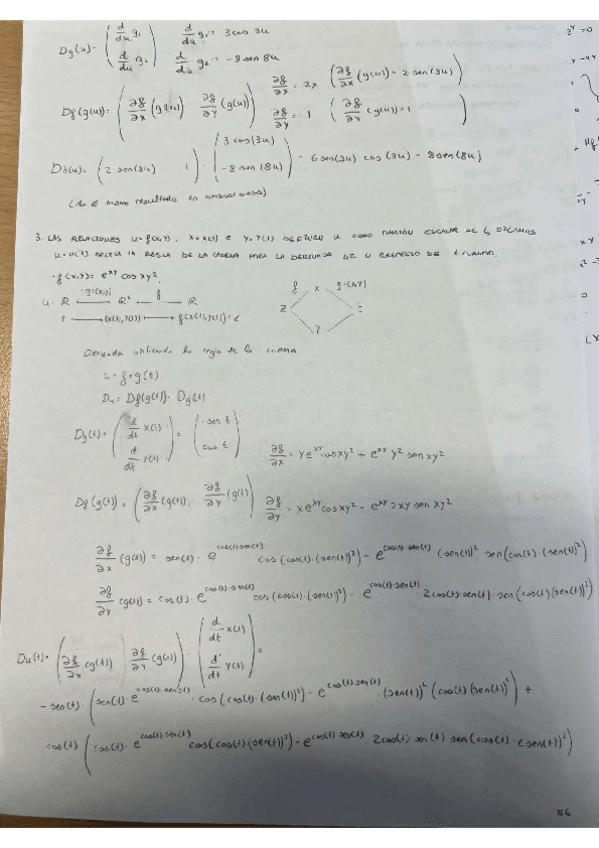 Dg(u) = ( d/du g₁ d/du g₂ ) d/du g₁ = 3 cos 3u
d/du g₂ = -8 sen 8u
Df(g(u)) = ( ∂f/∂x (g(u)) ∂f/∂y (g(u)) ) ∂f/∂x = 2x ( ∂f/∂x (g(u)) = 2 sen(3u) )
∂f/∂y = 1 ( ∂f/∂y (g(u)) = 1 )
(2 sen(3u) 1) · ( 3 cos(3u) -8 sen(8u) ) = 6 sen(3u) cos(3u) - 8 sen(8u)
3. LAS RELACIONES u = f(x,y), x = x(t) e y = y(t) DEFINEN u COMO FUNCIÓN ESCALAR DE t, DIGAMOS
u = u(t). APLICA LA REGLA DE LA CADENA PARA LA DERIVADA DE U RESPECTO DE t CUANDO,
- f(x,y) = e^xy cos xy².
u: ℝ → ℝ² f → ℝ
t → (x(t), y(t)) → f(x(t), y(t)) =
f x g = (x,y)
z
y
Derivada utilizando la regla de la cadena
u = f ∘ g(t)
Du = Df(g(t)) · Dg(t)
Dg(t) = ( d/dt x(t) d/dt y(t) ) = ( -sen t cos t )
∂f/∂x = y e^xy cos xy² - e^xy y² sen xy²
Df(g(t)) = ( ∂f/∂x (g(t)), ∂f/∂y (g(t)) ) ∂f/∂y = x e^xy cos xy² - e^xy 2xy sen xy²
∂f/∂x (g(t)) = sen(t) · e^cos(t) sen(t) cos(cos(t) · (sen(t))²) - e^cos(t) sen(t) (sen(t))² sen(cos(t) · (sen(t))²)
∂f/∂y (g(t)) = cos(t) · e^cos(t) · sen(t) cos(cos(t) · (sen(t))²) - e^cos(t) · sen(t) 2cos(t) · sen(t) · sen(cos(t) (sen(t))²)
Du(t) = ( ∂f/∂x (g(t)) ∂f/∂y (g(t)) ) · ( d/dt x(t) d/dt y(t) ) =
- sen(t) · ( sen(t) · e^cos(t) · sen(t) · cos(cos(t) · (sen(t))²) - e^cos(t) · sen(t) · (sen(t))² (cos(t) (sen(t))²) ) +
cos(t) ( cos(t) · e^cos(t) sen(t) cos(cos(t) · (sen(t))²) - e^cos(t) sen(t) · 2cos(t) · sen(t) sen(cos(t) · (sen(t))²)
56